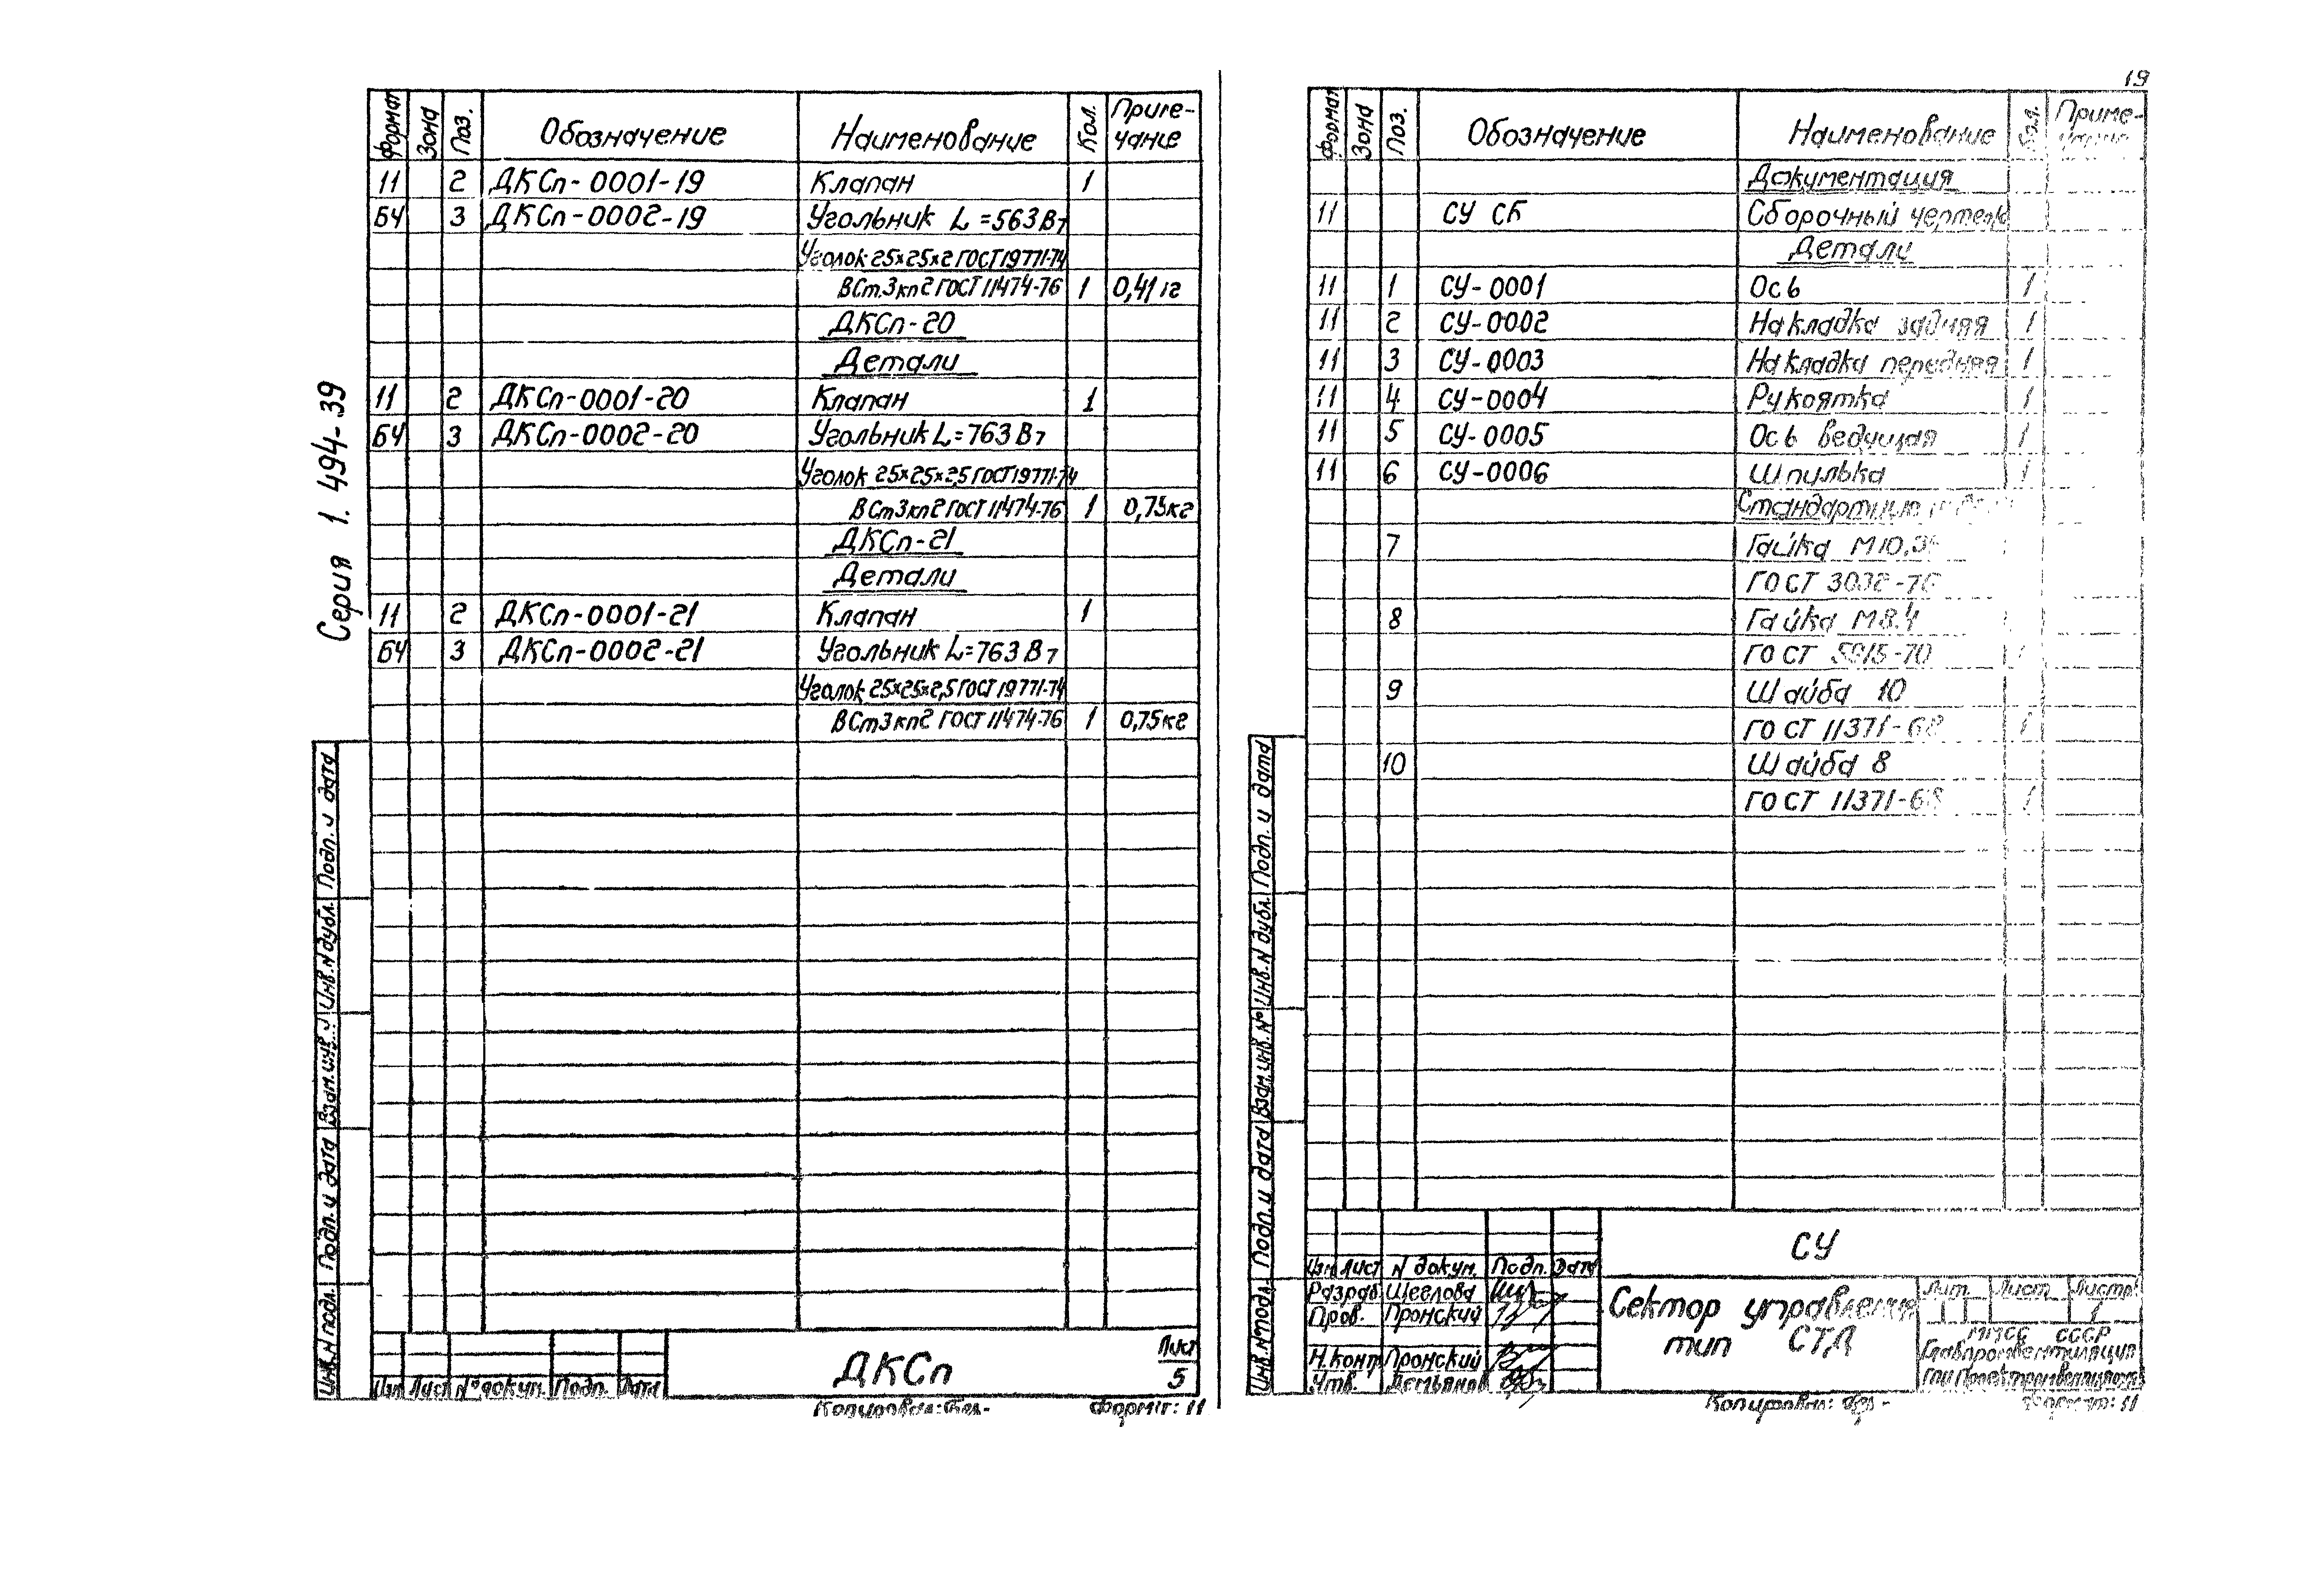 19
Серия 1.494-39
Формат Зона Поз. Обозначение Наименование Кол. Приме-
чание
11 2 ДКСп-0001-19 Клапан 1
БЧ 3 ДКСп-0002-19 Угольник L=563 В7
Уголок 25х25х2 ГОСТ 19771-74
ВСт.3кп2 ГОСТ 11474-76 1 0,41
ДКСп-20
Детали
11 2 ДКСп-0001-20 Клапан 1
БЧ 3 ДКСп-0002-20 Угольник L=763 В7
Уголок 25х25х2,5 ГОСТ 19771-74
ВСт3кп2 ГОСТ 11474-76 1 0,75кг
ДКСп-21
Детали
11 2 ДКСп-0001-21 Клапан 1
БЧ 3 ДКСп-0002-21 Угольник L=763 В7
Уголок 25х25х2,5 ГОСТ 19771-74
ВСт3кп2 ГОСТ 11474-76 1 0,75кг
Инв.N подл. Подп. и дата Взам.инв. Инв.N дубл. Подп. и дата
Изм Лист N°докум. Подп. Дата
ДКСп
Лист
5
Копировал: Формат: 11
Формат Зона Поз. Обозначение Наименование Кол. Приме-
чание
Документация
11 СУ СБ Сборочный чертеж
Детали
11 1 СУ-0001 Ось 1
11 2 СУ-0002 Накладка задняя 1
11 3 СУ-0003 Накладка передняя 1
11 4 СУ-0004 Рукоятка 1
11 5 СУ-0005 Ось ведущая 1
11 6 СУ-0006 Шпилька 1
Стандартные
7 Гайка
ГОСТ 3032-76
8 Гайка М8.4
ГОСТ 5915-70
9 Шайба 10
ГОСТ 11371-68 1
10 Шайба 8
ГОСТ 11371-68 1
Инв.N°подл. Подп. и дата Взам.инв.N° Инв.N дубл. Подп. и дата
Изм Лист N докум. Подп. Дата
Разраб. Щеглова
Пров. Пронский
Н.контр Пронский
Утв. Демьянов
СУ
Сектор управления
тип СТД
Лит. Лист Листов
1
ММСС СССР
Главпромвентиляция
ГПИ Проектпромвентиляция
Копировал: Формат: 11